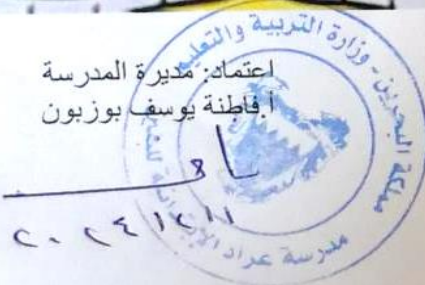 اعتماد: مديرة المدرسة
أ.فاطنة يوسف بوزبون
مملكة البحرين - وزارة التربية والتعليم
مدرسة عراد الابتدائية للبنات